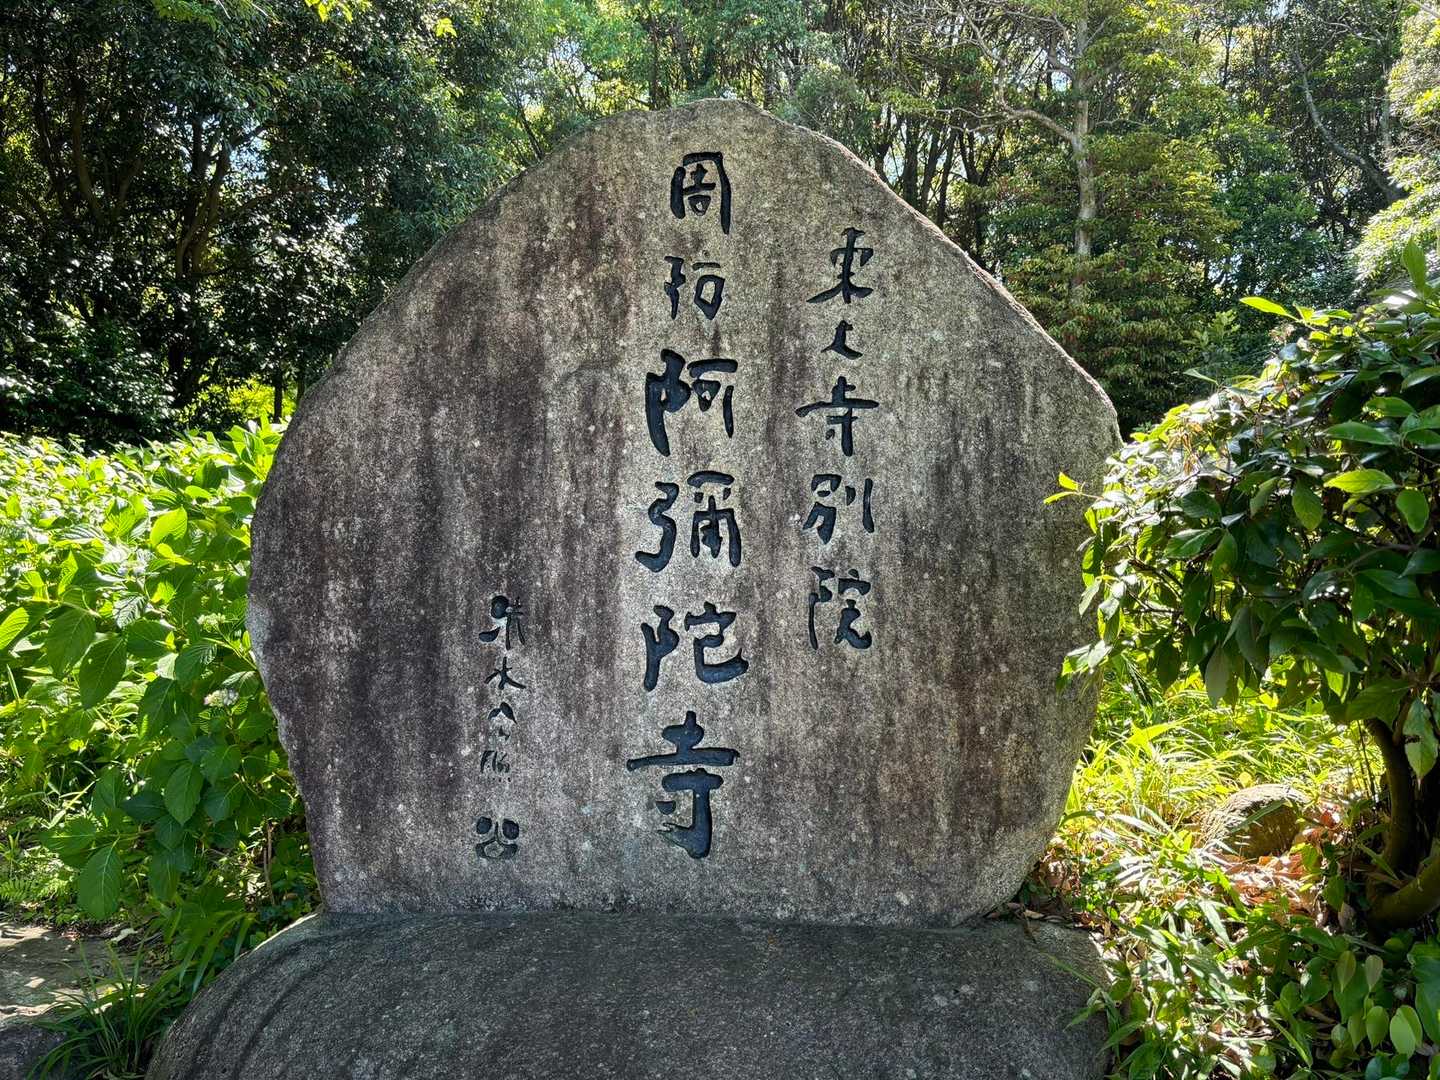 東大寺別院
周防阿彌陀寺
清水公照